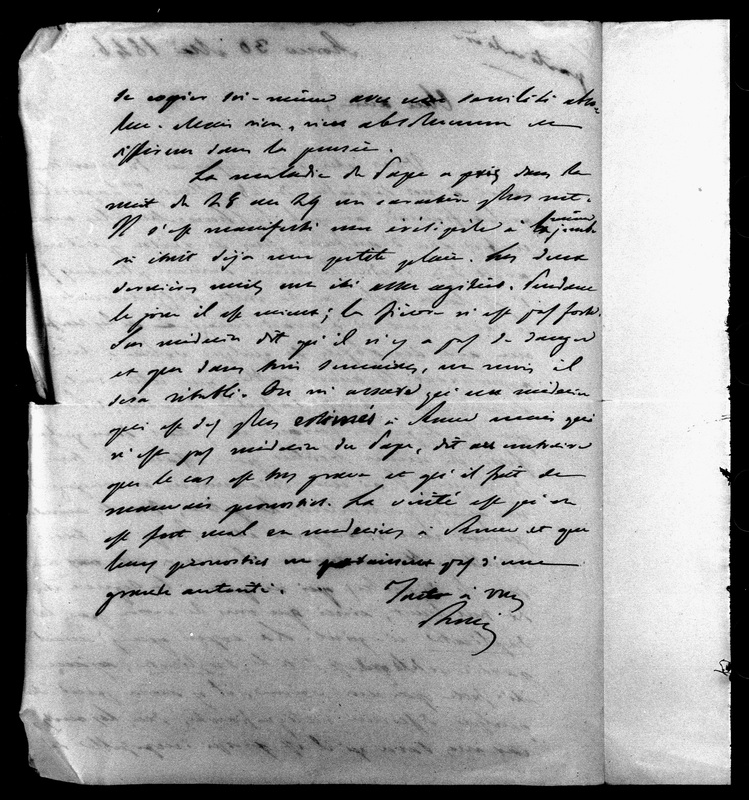 se copier soi-même avec une servilité abso-
lue. Mais rien, rien absolument de
différent dans la pensée.
La maladie du Pape a pris dans la
nuit du 28 au 29 un caractère plus net.
Il s'est manifesté une érésipèle à la même jambe
où était déjà une petite plaie. Les deux
dernières nuits ont été assez agitées. Pendant
le jour il est mieux; la fièvre n'est pas forte.
Son médecin dit qu'il n'y a pas de danger
et que dans trois semaines, un mois il
sera rétabli. On m'assure qu'un médecin
qui est des plus estimés à Rome mais qui
n'est pas médecin du Pape, dit au contraire
que le cas est très grave et qu'il fait de
mauvais pronostics. La vérité est qu'on
est fort mal en médecins à Rome et que
leurs pronostics ne jouissent pas d'une
grande autorité.
Tout à vous
Rossi